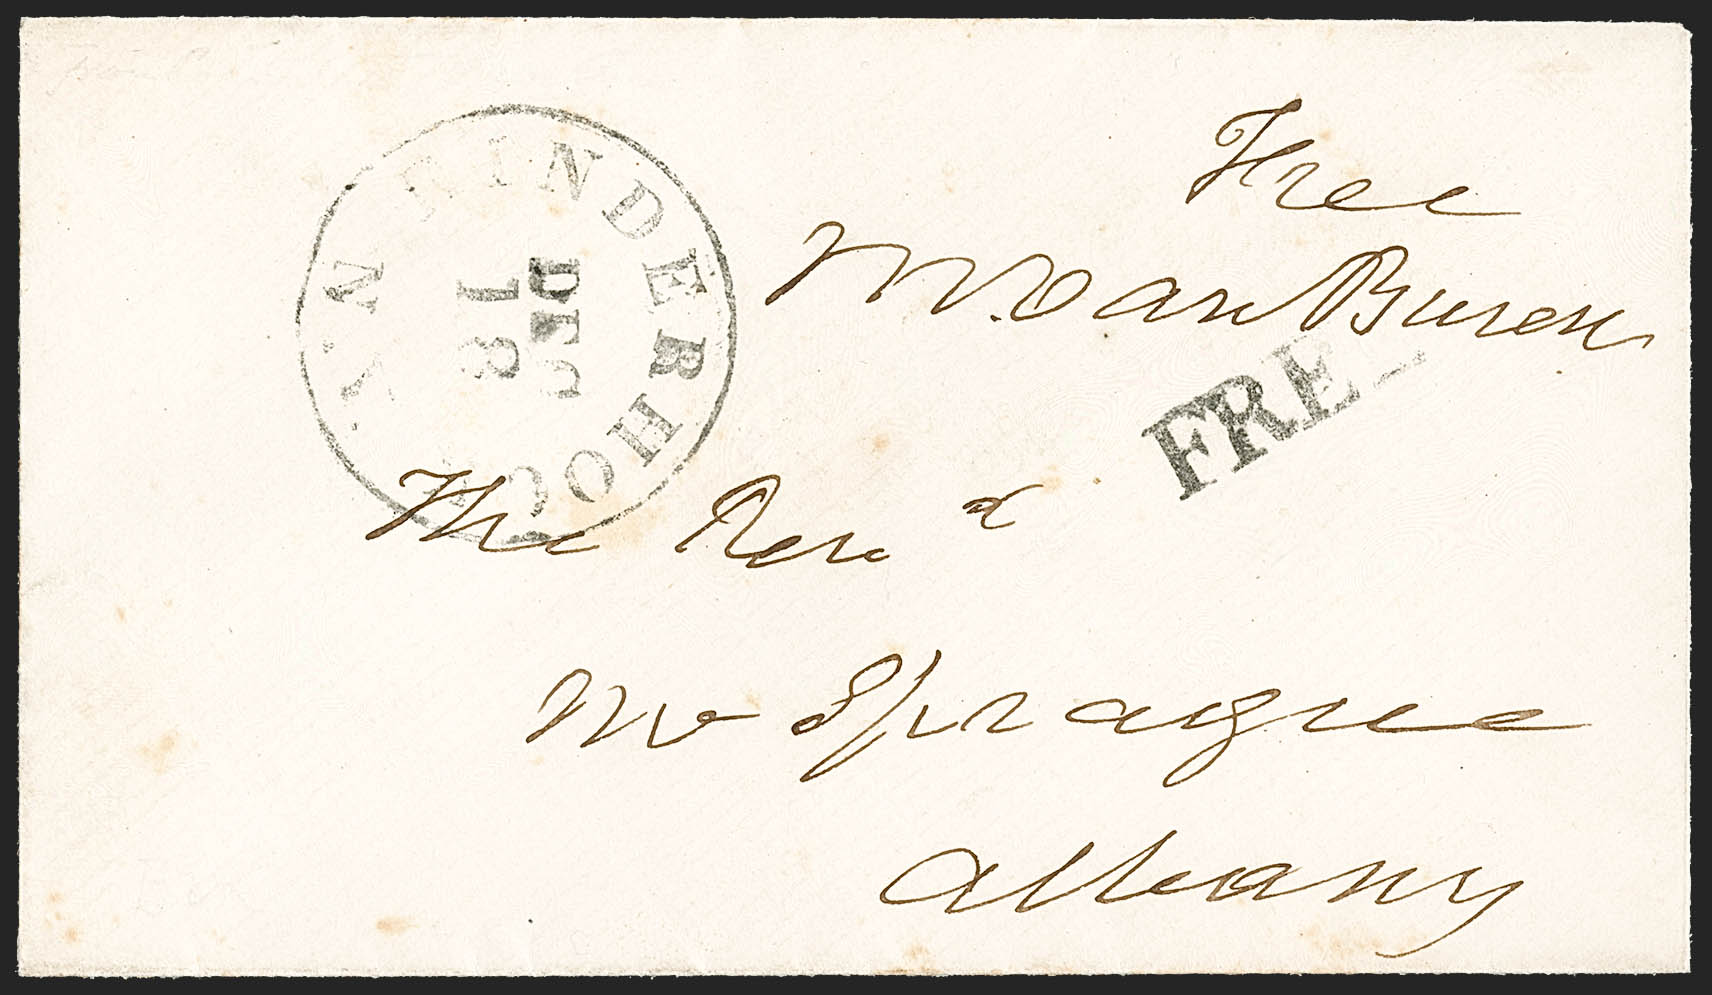 Free
M. Van Buren
KINDERHOOK N.Y.
DEC
18
FREE
The Rev. d
Mr Sprague
Albany